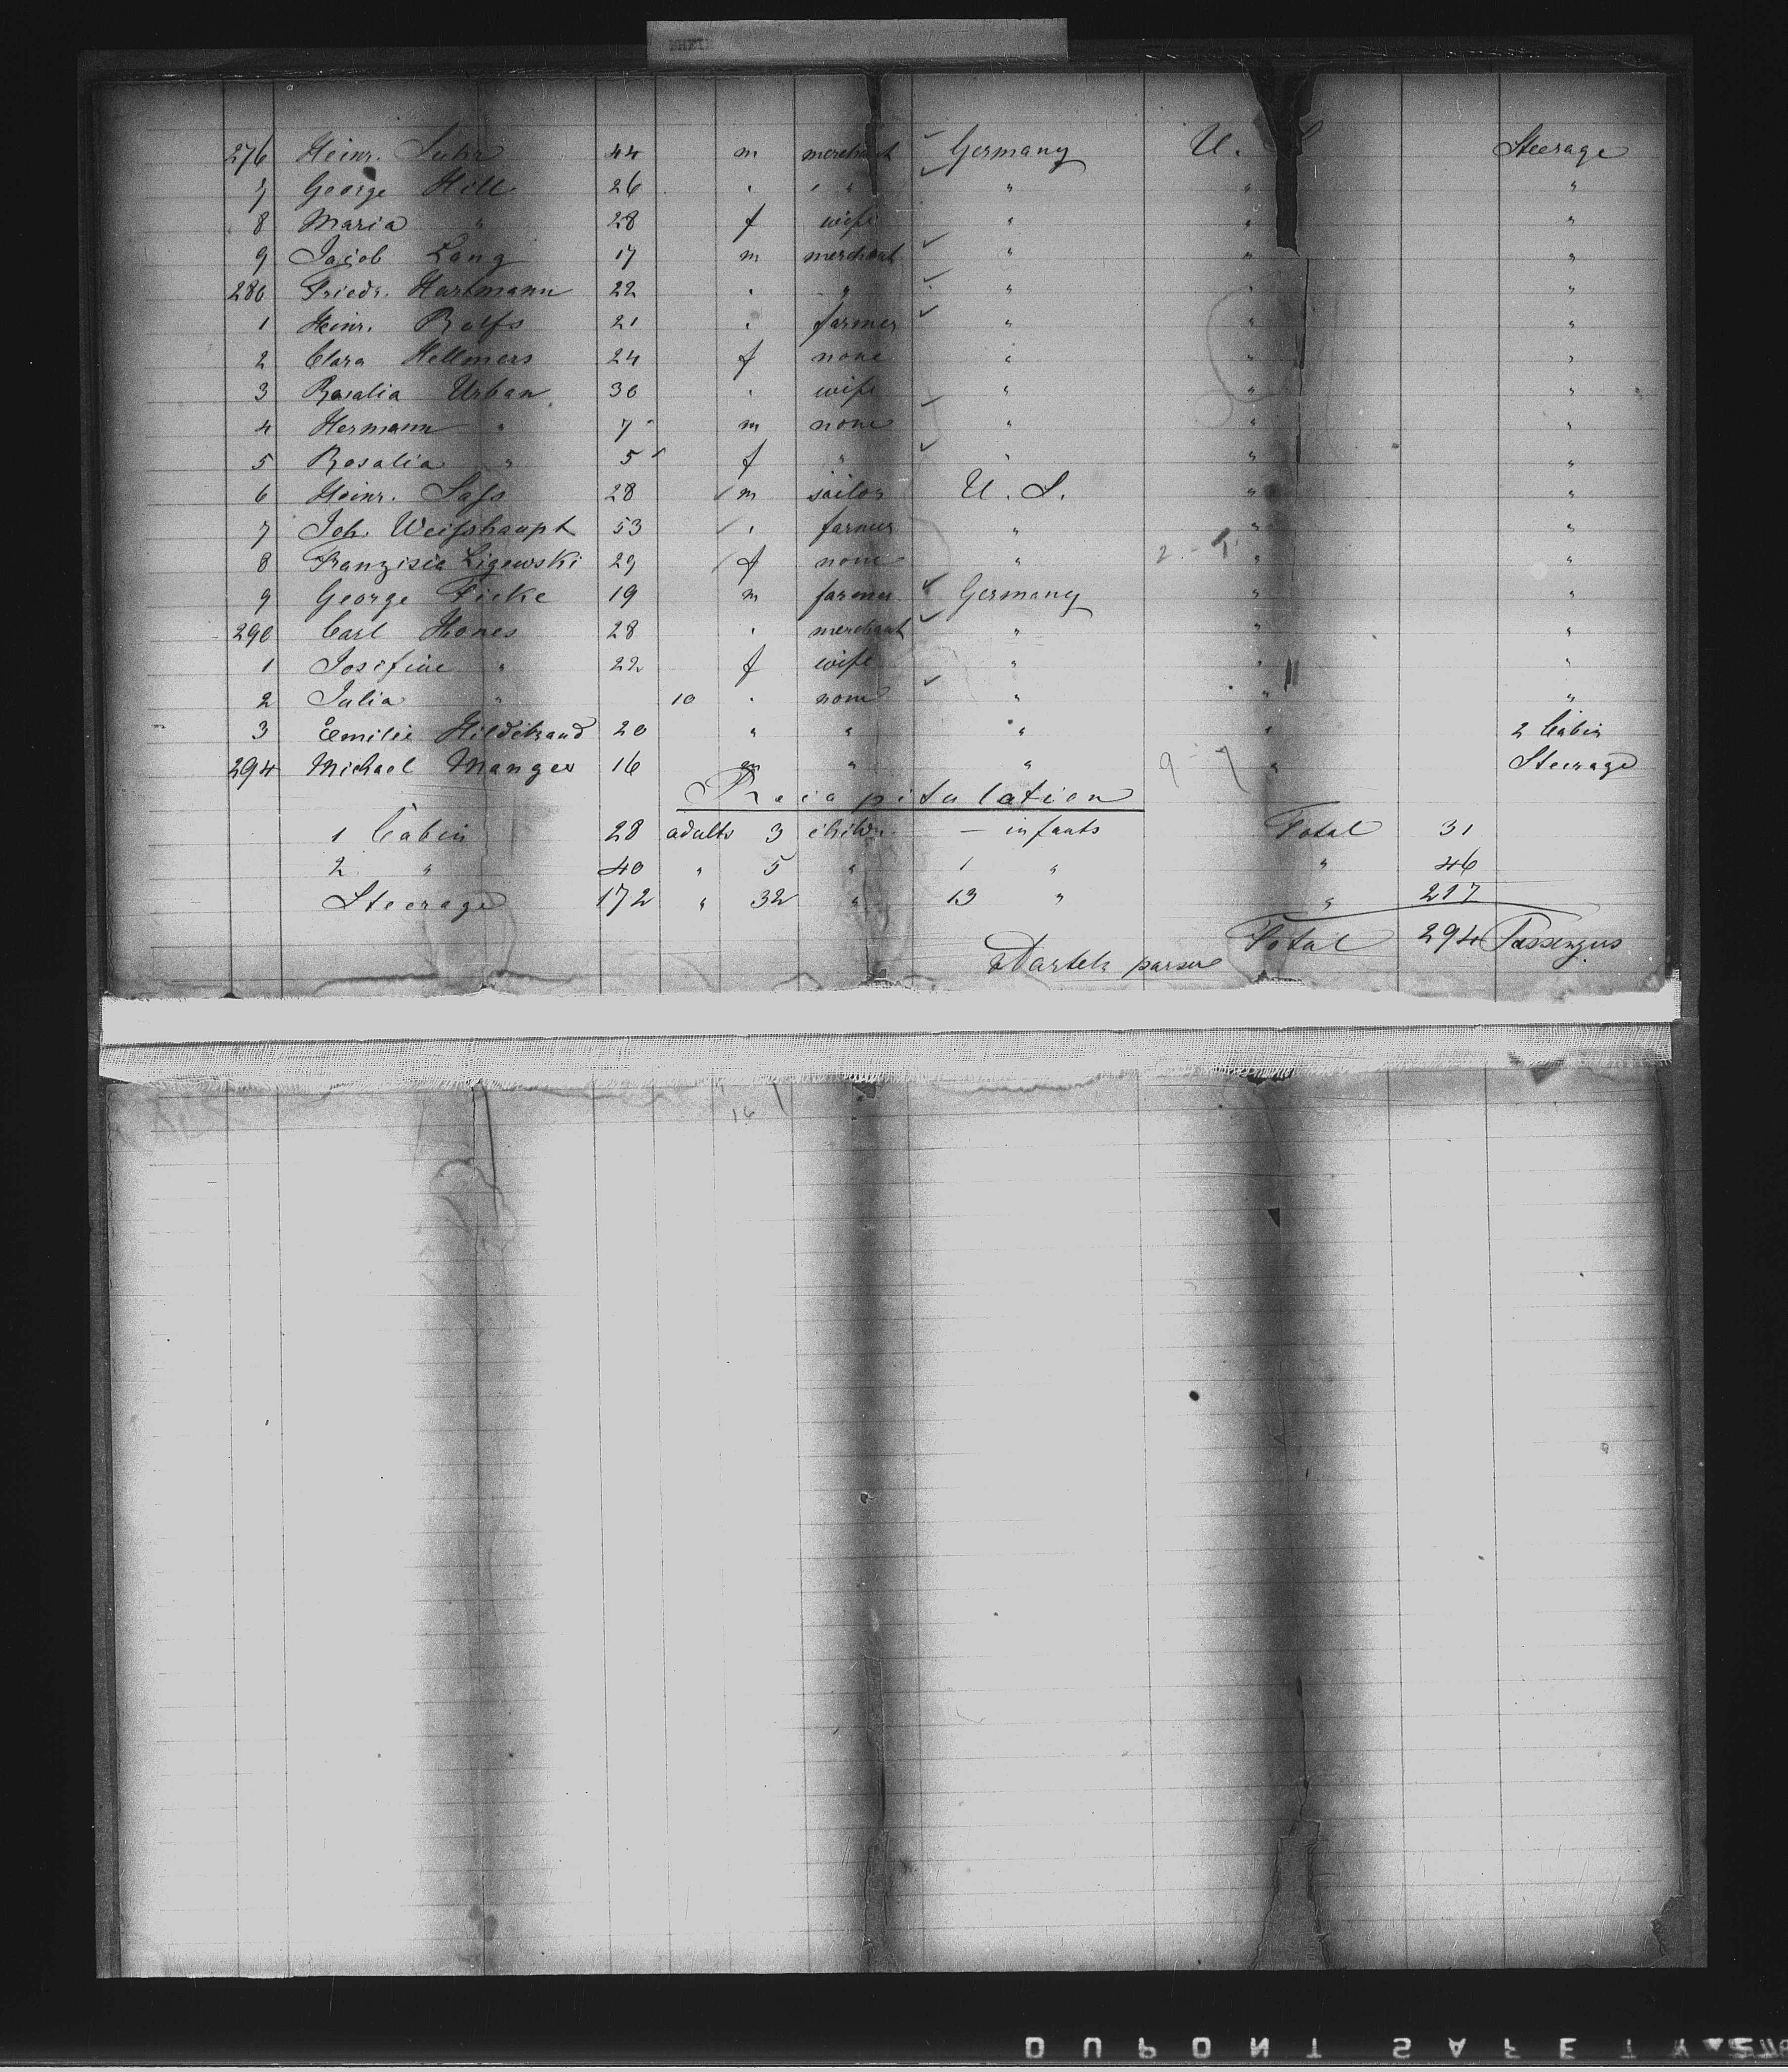 276 Heinr. Suhr 44 m merchant Germany U. S Steerage
7 George Hill 26 " " " " "
8 Maria " 28 f wife " " "
9 Jacob Lang 17 m merchant " " "
280 Friedr. Hartmann 22 " " " " "
1 Heinr. Rolfs 21 " farmer " " "
2 Clara Hellmers 24 f none " " "
3 Rosalia Urban 30 " wife " " "
4 Hermann " 7 m none " " "
5 Rosalia " 5 f " " " "
6 Heinr. Sass 28 m sailor U. S. " "
7 Joh. Weisshaupt 53 " farmer " " "
8 Franzisca Ligewski 29 f none " " "
9 George Ficke 19 m farmer Germany " "
290 Carl Hones 28 " merchant " " "
1 Josefine " 22 f wife " " "
2 Julia " 10 " none " " "
3 Emilie Hildebrand 20 " " " " 2 Cabin
294 Michael Manger 16 m " " " Steerage
Recapitulation
1 Cabin 28 adults 3 childr. — infants Total 31
2 " 40 " 5 " 1 " " 46
Steerage 172 " 32 " 13 " " 217
Total 294 Passengers
purser
DUPONT SAFETY